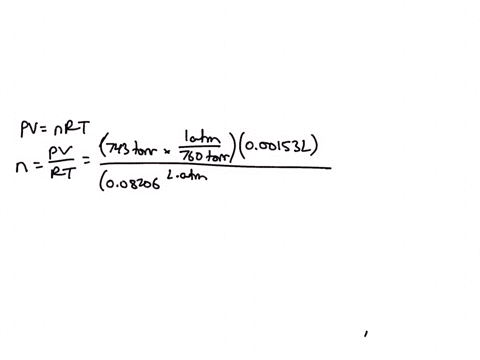 PV = nRT
n = PV/RT = (743 torr × 1 atm/760 torr)(0.00153L)/(0.08206 L·atm